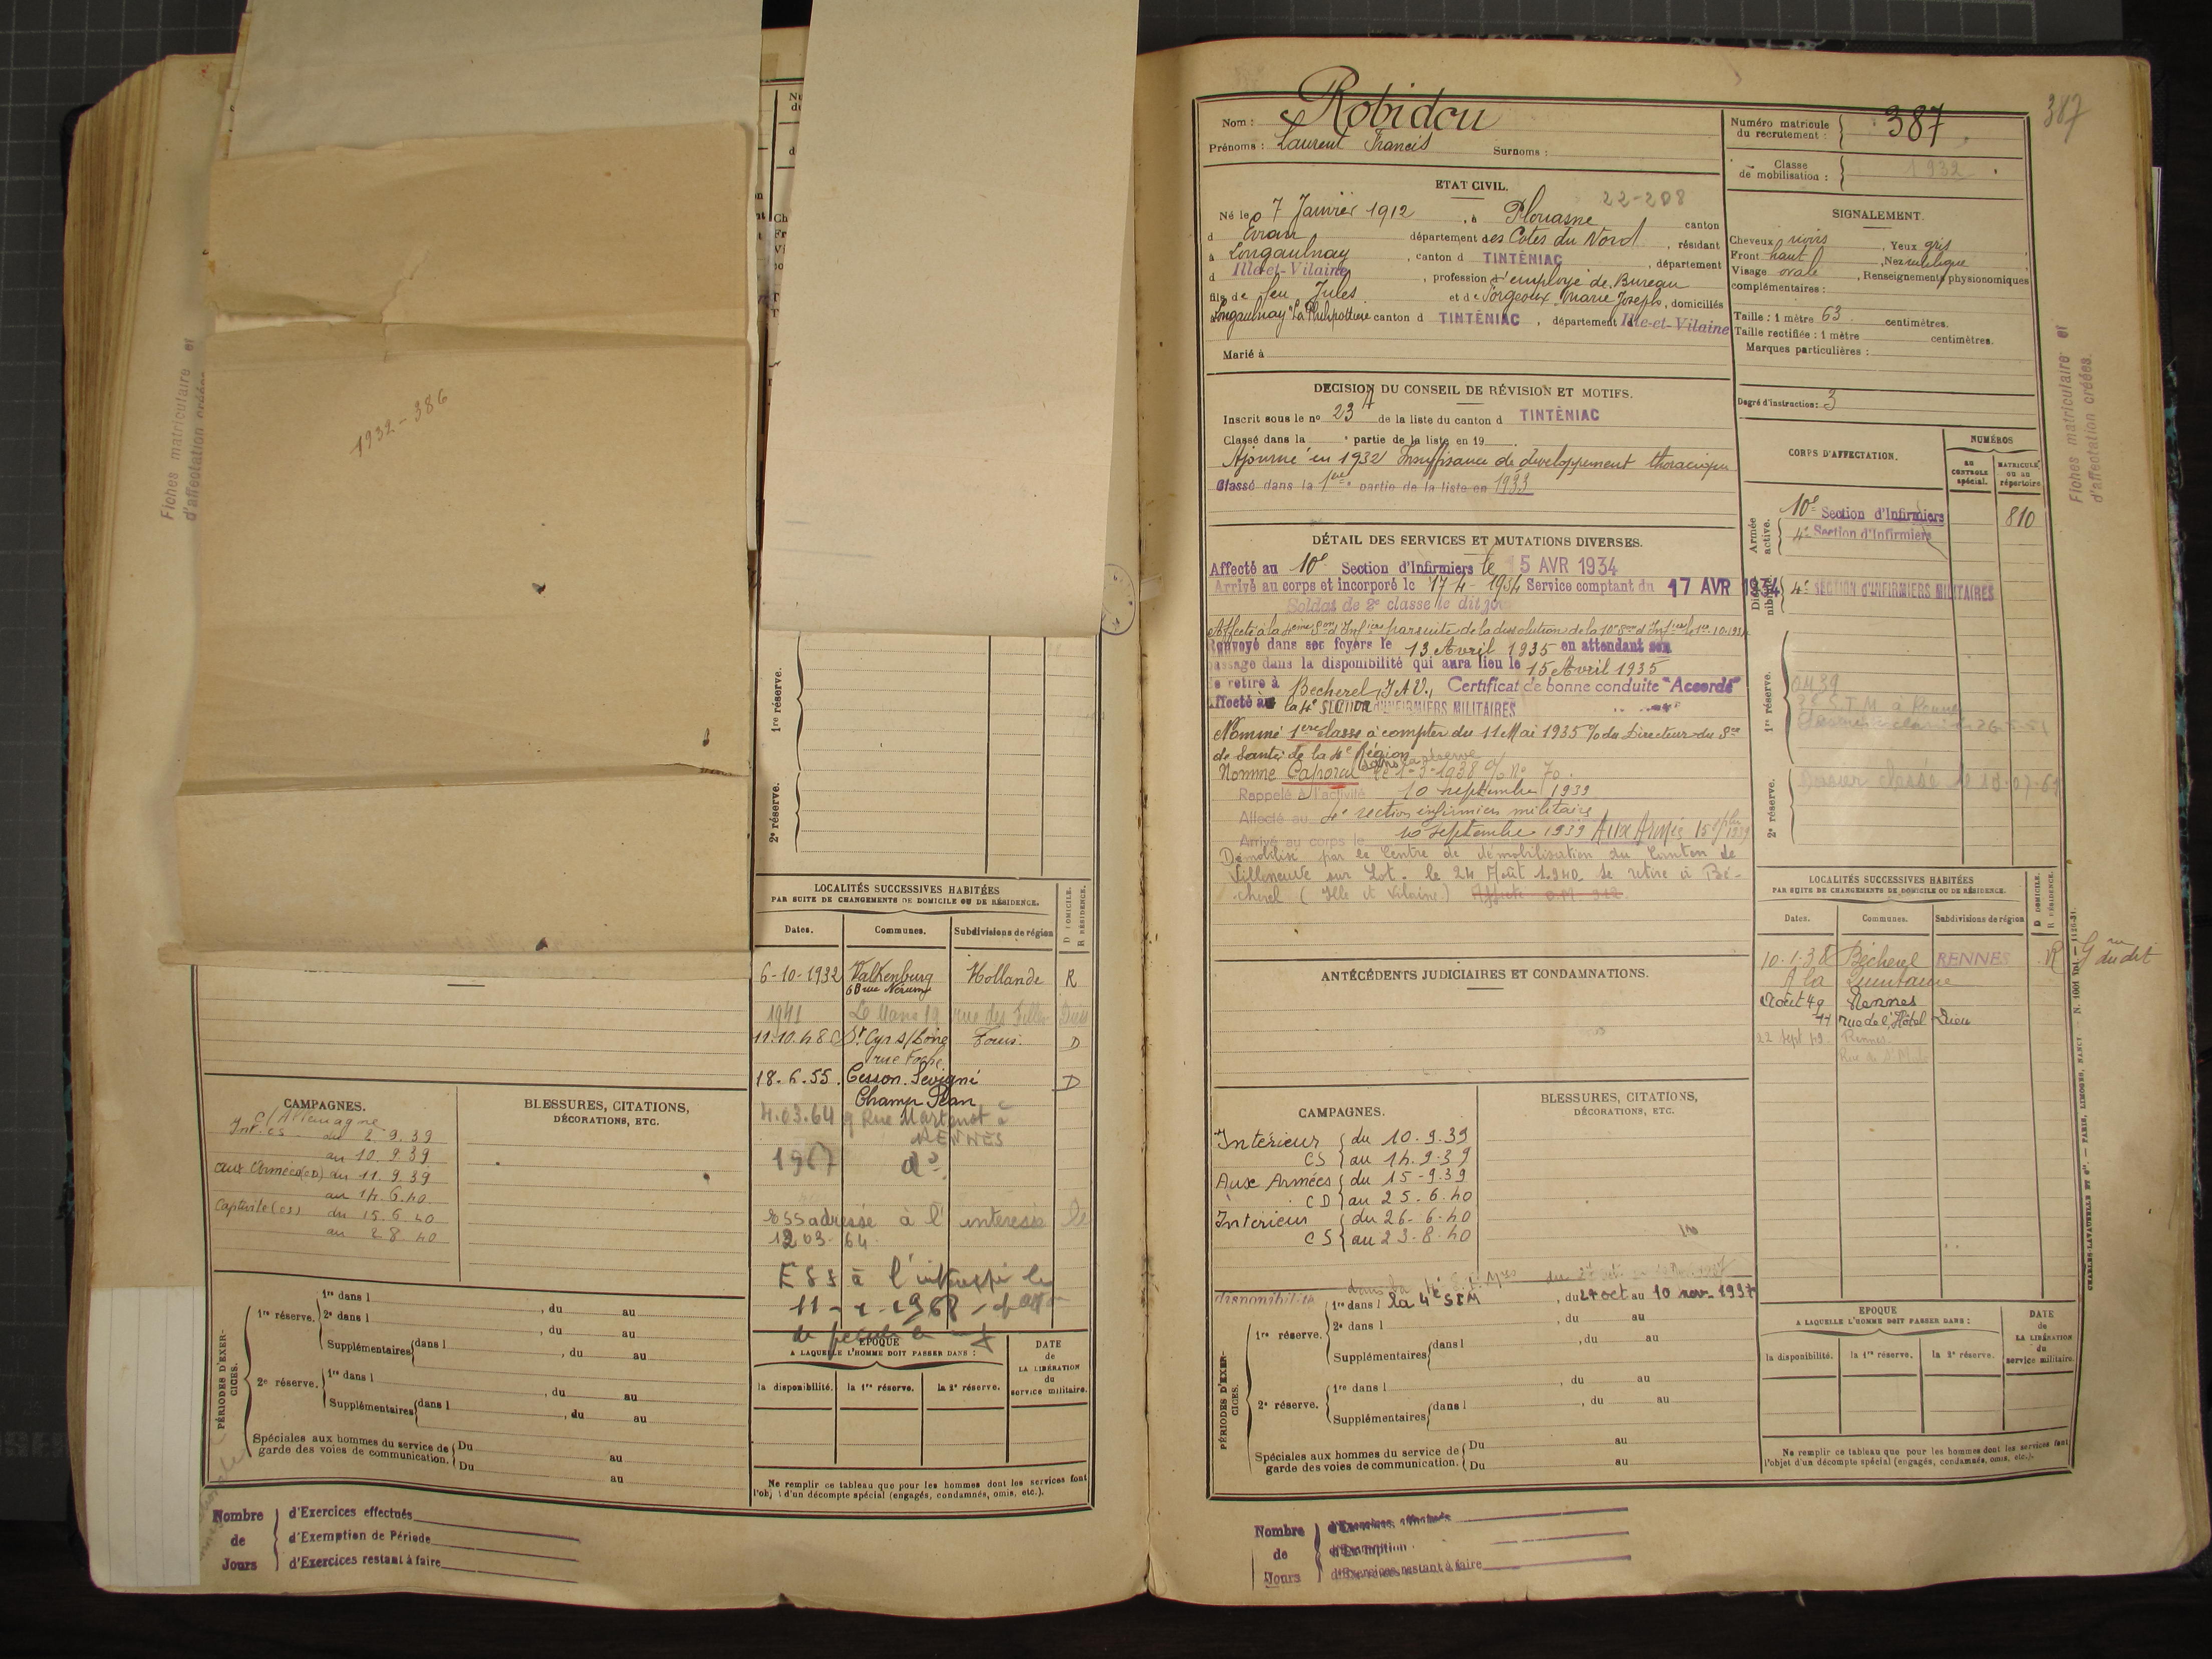 Fiches matriculaire et
d'affectation créées.
1932-386
1re réserve.
2e réserve.
LOCALITÉS SUCCESSIVES HABITÉES
PAR SUITE DE CHANGEMENTS DE DOMICILE OU DE RÉSIDENCE.
D DOMICILE.
R RÉSIDENCE.
Dates. Communes. Subdivisions de région
6-10-1932 Valkenburg Hollande R
1941 Le Mans 19 rue des
11.10.48 St Cyr s/Loire Tours. D
rue Foch
18.6.55. Cesson-Sevigné D
Champ Péan
4.03.64 9 Rue Martenot à
RENNES
1967 do
ESS adressé à l'intéressé le
12 03-64
ESS à l'intéressé le
11-1-1968
CAMPAGNES.
C/Allemagne
Int. CS du 2.9.39
au 10.9.39
aux Armées (CD) du 11.9.39
au 14.6.40
Captivité (CS) du 15.6.40
au 28.40
BLESSURES, CITATIONS,
DÉCORATIONS, ETC.
PÉRIODES D'EXER-
CICES.
1re réserve. 1re dans l , du au
2e dans l , du au
Supplémentaires dans l , du au
2e réserve. 1re dans l , du au
Supplémentaires dans l , du au
Spéciales aux hommes du service de Du au
garde des voies de communication. Du au
EPOQUE
A LAQUELLE L'HOMME DOIT PASSER DANS :
DATE
de
LA LIBÉRATION
du
service militaire.
la disponibilité. la 1re réserve. la 2e réserve.
Ne remplir ce tableau que pour les hommes dont les services font
l'objet d'un décompte spécial (engagés, condamnés, omis, etc.).
Nombre d'Exercices effectués
de d'Exemption de Période
Jours d'Exercices restant à faire
387
Nom : Robidou
Prénoms : Laurent Francis Surnoms :
Numéro matricule
du recrutement : 387
Classe
de mobilisation : 1932
ETAT CIVIL.
22-208
Né le 7 Janvier 1912, à Plouasne canton
d Evran département des Côtes du Nord, résidant
à Longaulnay, canton d TINTÉNIAC, département
d Ille-et-Vilaine, profession d'employé de Bureau
fils de feu Jules et de Sorgeoux Marie Joseph, domiciliés
à Longaulnay "La Philpottière canton d TINTÉNIAC, département Ille-et-Vilaine
Marié à
SIGNALEMENT.
Cheveux noirs, Yeux gris
Front haut, Nez rectiligne
Visage ovale, Renseignements physionomiques
complémentaires :
Taille : 1 mètre 63 centimètres.
Taille rectifiée : 1 mètre centimètres.
Marques particulières :
Degré d'instruction : 3
DECISION DU CONSEIL DE RÉVISION ET MOTIFS.
Inscrit sous le no 23 de la liste du canton d TINTÉNIAC
Classé dans la e partie de la liste en 19
Ajourné en 1932 Insuffisance de développement thoracique
Classé dans la 1ère partie de la liste en 1933
CORPS D'AFFECTATION.
NUMÉROS
AU CONTROLE spécial.
MATRICULE OU AU répertoire.
Armée active.
10e Section d'Infirmiers 810
4e Section d'Infirmiers
4e SECTION D'INFIRMIERS MILITAIRES
1re réserve.
2e réserve.
Dossier classé le 18-07-6
DÉTAIL DES SERVICES ET MUTATIONS DIVERSES.
Affecté au 10e Section d'Infirmiers le 15 AVR 1934
Arrivé au corps et incorporé le 17-4-1934 Service comptant du 17 AVR 1934
Soldat de 2e classe le dit jour
Affecté à la 4ème Son d'Infiers par suite de la dissolution de la 10e Son d'Infiers le 1er.10.1934
Renvoyé dans ses foyers le 13 Avril 1935 en attendant son
passage dans la disponibilité qui aura lieu le 15 Avril 1935
Se retire à Becherel, I & V. Certificat de bonne conduite "Accordé"
Affecté à la 4e SECTION D'INFIRMIERS MILITAIRES
Nommé 1ère classe à compter du 11 Mai 1935 % du Directeur du Sce
de Santé de la 4e Région
Nommé Caporal dans la réserve le 1-3-1938 % No 70.
Rappelé à l'activité 10 septembre 1939
Affecté au 4e section infirmiers militaire
Arrivé au corps le 10 septembre 1939 Aux Armées 15 7bre 1939
Démobilisé par le Centre de démobilisation du Canton de
Villeneuve sur Lot. le 24 Août 1940. se retire à Bé-
cherel (Ille et Vilaine)
ANTÉCÉDENTS JUDICIAIRES ET CONDAMNATIONS.
LOCALITÉS SUCCESSIVES HABITÉES
PAR SUITE DE CHANGEMENTS DE DOMICILE OU DE RÉSIDENCE.
D DOMICILE.
R RÉSIDENCE.
Dates. Communes. Subdivisions de région
10.1.38 Bécherel RENNES R Gn du dit
A la Quintaine
Août 49 Rennes
44 rue de l'Hôtel Dieu
22 Sept 49 Rennes.
CAMPAGNES.
Intérieur du 10.9.39
CS au 14.9.39
Aux Armées du 15-9.39
CD au 25.6.40
Intérieur du 26-6.40
CS au 23-8.40
BLESSURES, CITATIONS,
DÉCORATIONS, ETC.
disponibilité
PÉRIODES D'EXER-
CICES.
1re réserve. 1re dans l la 4e SIM, du 24 oct au 10 nov. 1937
2e dans l , du au
Supplémentaires dans l , du au
2e réserve. 1re dans l , du au
Supplémentaires dans l , du au
Spéciales aux hommes du service de Du au
garde des voies de communication. Du au
EPOQUE
A LAQUELLE L'HOMME DOIT PASSER DANS :
DATE
de
LA LIBÉRATION
du
service militaire.
la disponibilité. la 1re réserve. la 2e réserve.
Ne remplir ce tableau que pour les hommes dont les services font
l'objet d'un décompte spécial (engagés, condamnés, omis, etc.).
Nombre d'Exercices effectués
de d'Exemption
Jours d'Exercices restant à faire
Fiches matriculaire et
d'affectation créées.
CHARLES-LAVAUZELLE ET Cie. — PARIS, LIMOGES, NANCY